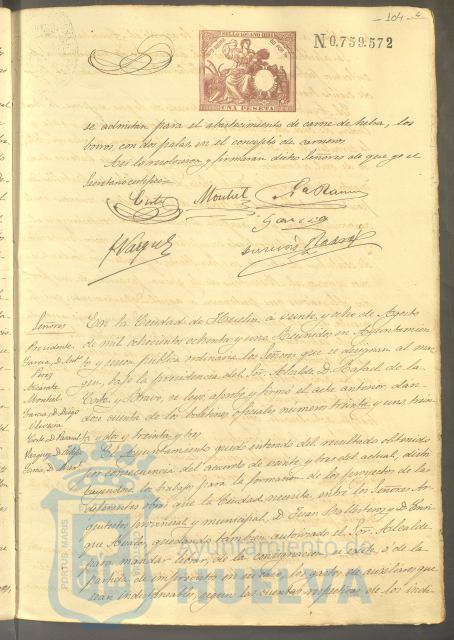 104
SELLO 10º AÑO 1881
N. 0.759.572
UNA PESETA
se admitan para el abastecimiento de carne de hebra, los
borros, con dos palas, en el concepto de carneros.
Así lo resolvieron y firmaran dichos Señores de que yo el
Secretario certifico.
Montiel
García
F Vazquez
Señores
Presidente
García, D. Antº
Perez
Montiel
García, D. Diego
En la Ciudad de Huelva a veinte y ocho de Agosto
de mil ochocientos ochenta y uno. Reunidos en Ayuntamien
to y sesion pública ordinaria los Señores que se designan al mar
gen, bajo la presidencia del Sr. Alcalde D. Rafael de la
Corte y Bravo, se leyó, aprobó y firmó el acta anterior dan
dose cuenta de los boletines oficiales número treinta y uno, trein
ta y dos y treinta y tres.
El Ayuntamiento quedó enterado del resultado obtenido
por consecuencia del acuerdo de veinte y tres del actual,
los trabajos para la formacion de los proyectos de las
diferentes obras que la Ciudad necesita, entre los Señores Ar
quitectos provincial y municipal, D. Juan Ballesteros y D. Enri
que quedando tambien autorizado el Sr. Alcalde
para mandar librar, de la consignacion de este o de la
partida de imprevistos en su caso, los gastos de auxiliares que
sean indispensables, segun las cuentas respectivas de los indi-
PORTUS MARIS
Ayuntamiento de
HUELVA